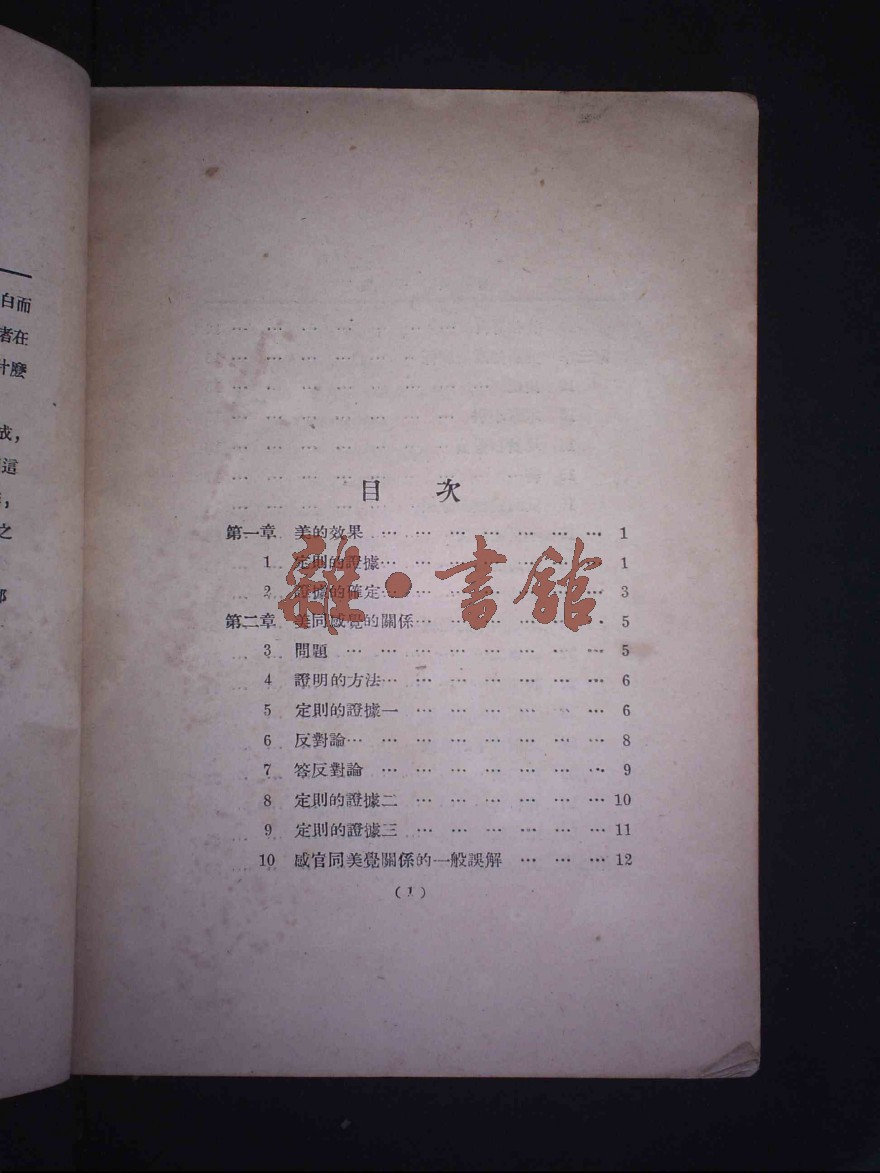 白而
者在
什麼
成,
這
之
目 次
第一章 美的效果 … … … … … … … 1
1 定則的證據… … … … … … … 1
2 證據的確定… … … … … … … 3
第二章 美同感覺的關係… … … … … … 5
3 問題 … … … … … … … … 5
4 證明的方法… … … … … … … 6
5 定則的證據一 … … … … … … 6
6 反對論… … … … … … … … 8
7 答反對論 … … … … … … … 9
8 定則的證據二 … … … … … … 10
9 定則的證據三 … … … … … … 11
10 感官同美覺關係的一般誤解 … … … 12
(1)
雜·書館